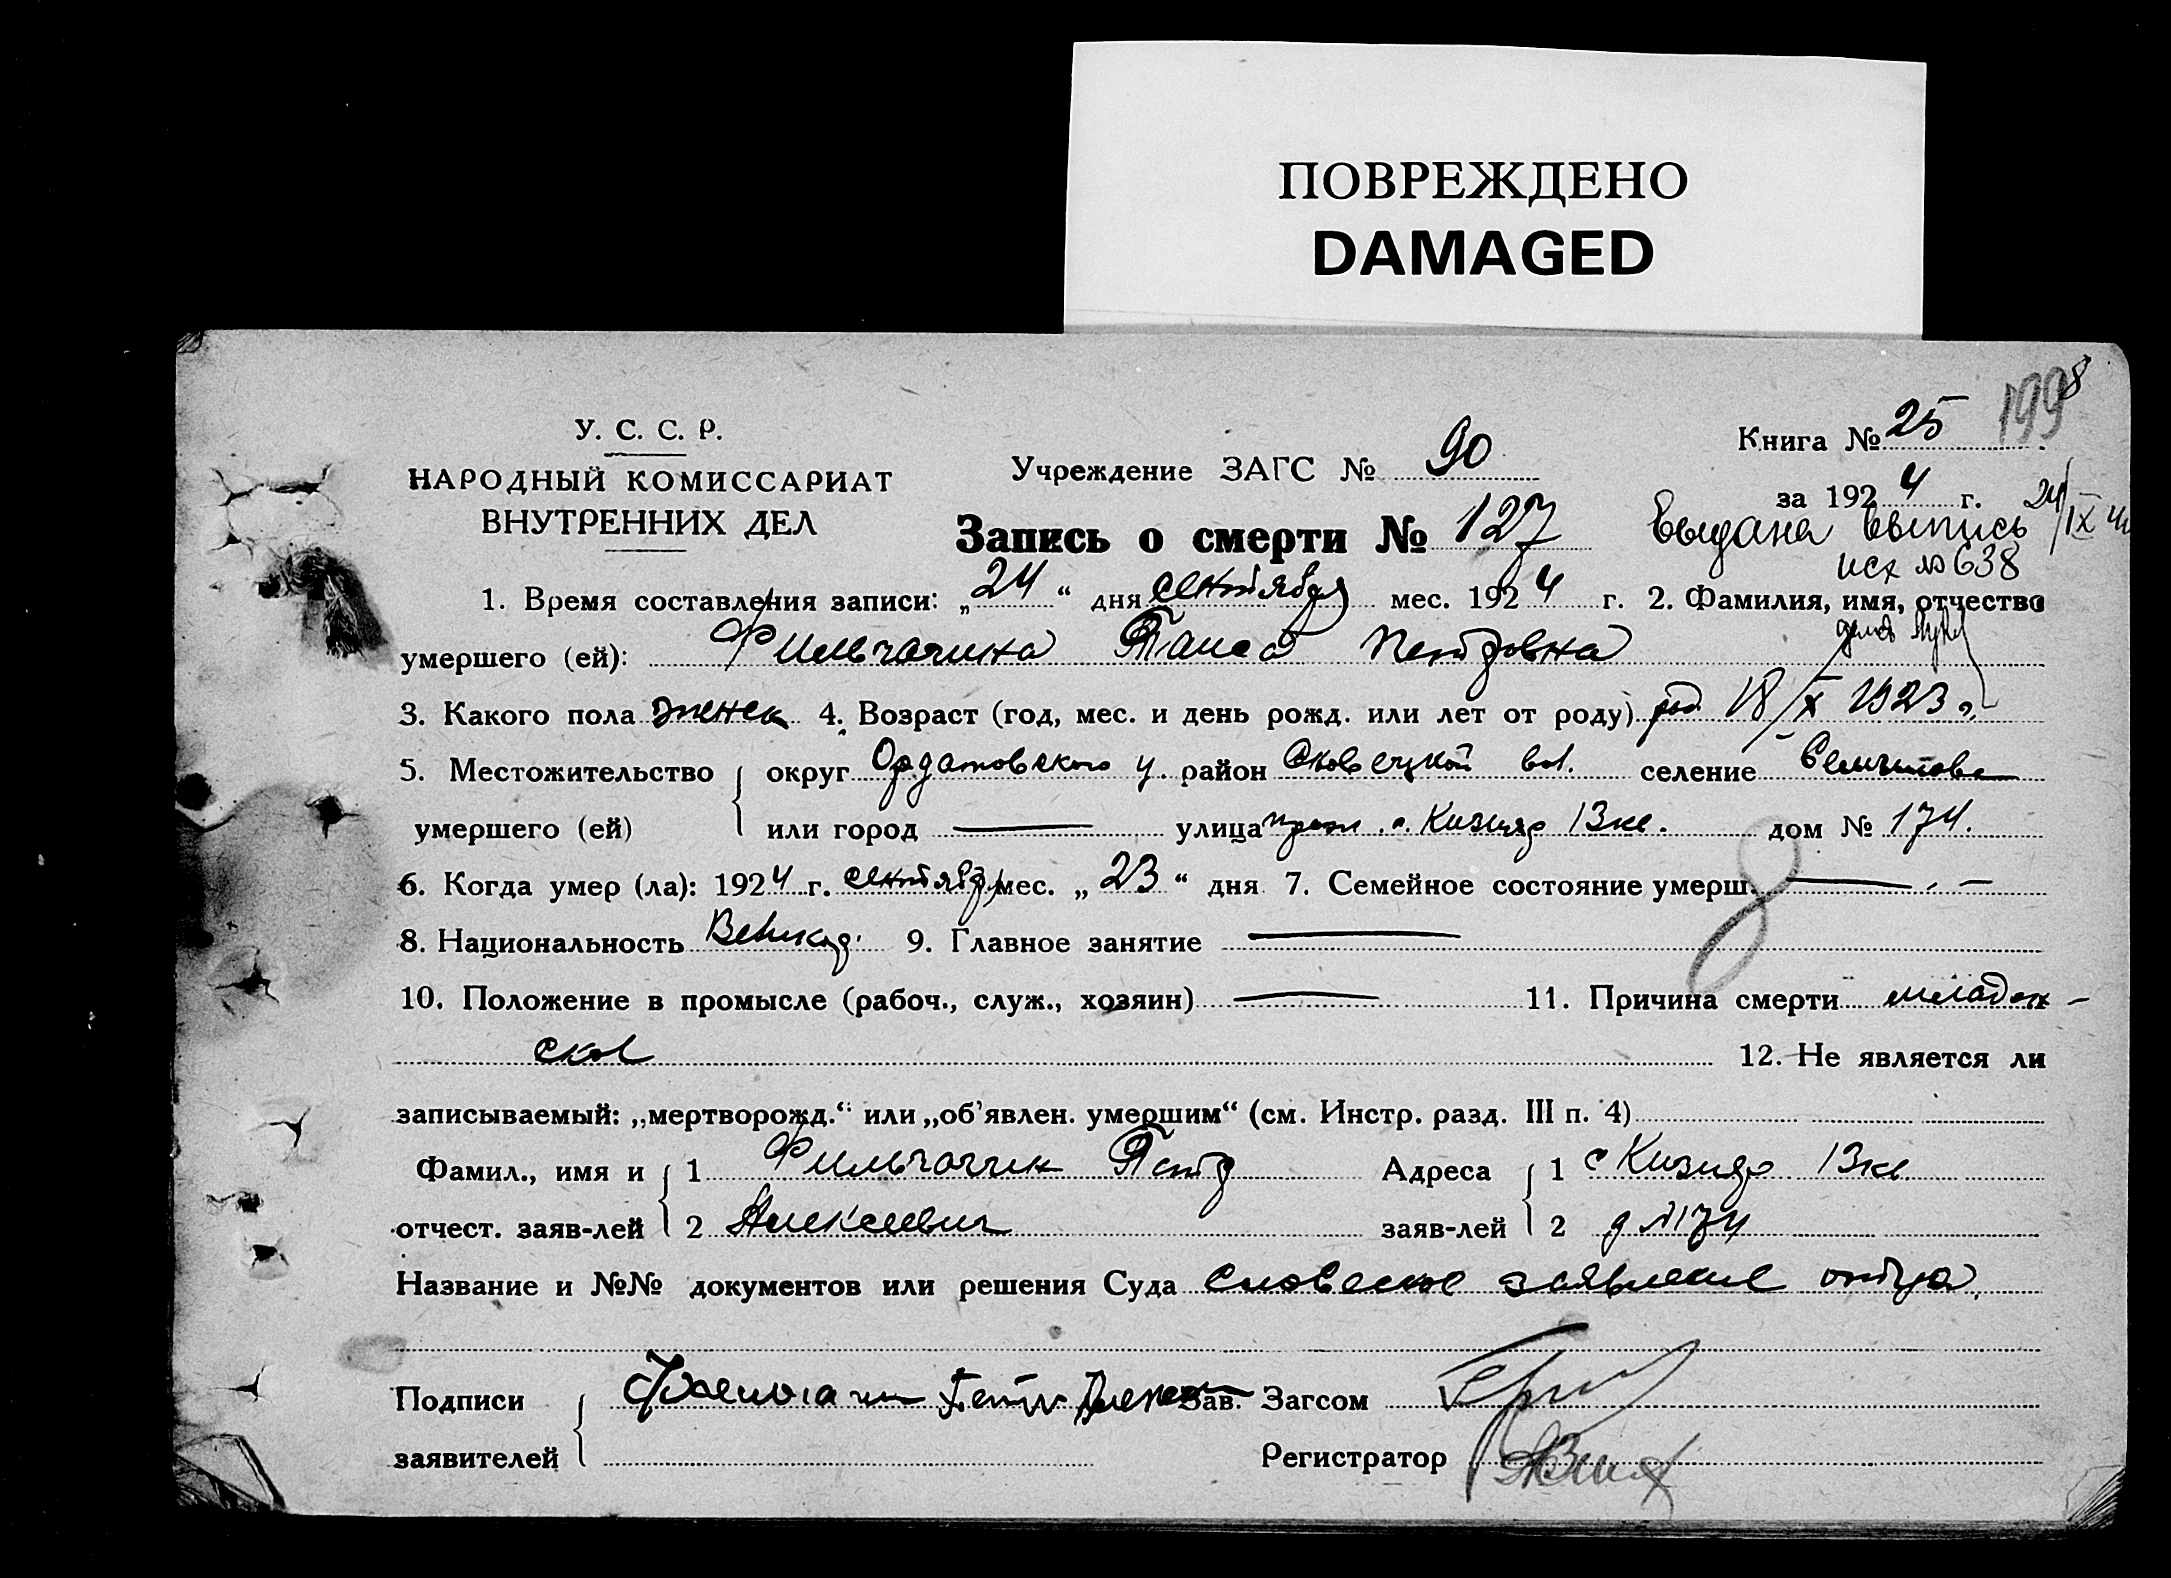 ПОВРЕЖДЕНО
DAMAGED
199 8
У. С. С. Р.
НАРОДНЫЙ КОМИССАРИАТ
ВНУТРЕННИХ ДЕЛ
Учреждение ЗАГС № 90
Книга № 25
за 1924 г. 24/IX
Запись о смерти № 127
Выдана выпись
исх № 638
1. Время составления записи: „24“ дня сентября мес. 1924 г. 2. Фамилия, имя, отчество
умершего (ей): Петровна
3. Какого пола женск 4. Возраст (год, мес. и день рожд. или лет от роду) род 18/X 1923 г.
5. Местожительство округ Ордатовского у. район вол. селение
умершего (ей) или город — улица 13 кв. дом № 174.
6. Когда умер (ла): 1924 г. сентября мес. „23“ дня 7. Семейное состояние умерш. —
8. Национальность Великор. 9. Главное занятие —
10. Положение в промысле (рабоч., служ., хозяин) — 11. Причина смерти младен-
ская
12. Не является ли
записываемый: „мертворожд.“ или „об'явлен. умершим“ (см. Инстр. разд. III п. 4)
Фамил., имя и 1 Петр Адреса 1 13 кв.
отчест. заяв-лей 2 Алексеевич заяв-лей 2 д №174
Название и №№ документов или решения Суда Словесное заявление отца.
Подписи Петр Зав. Загсом
заявителей Регистратор